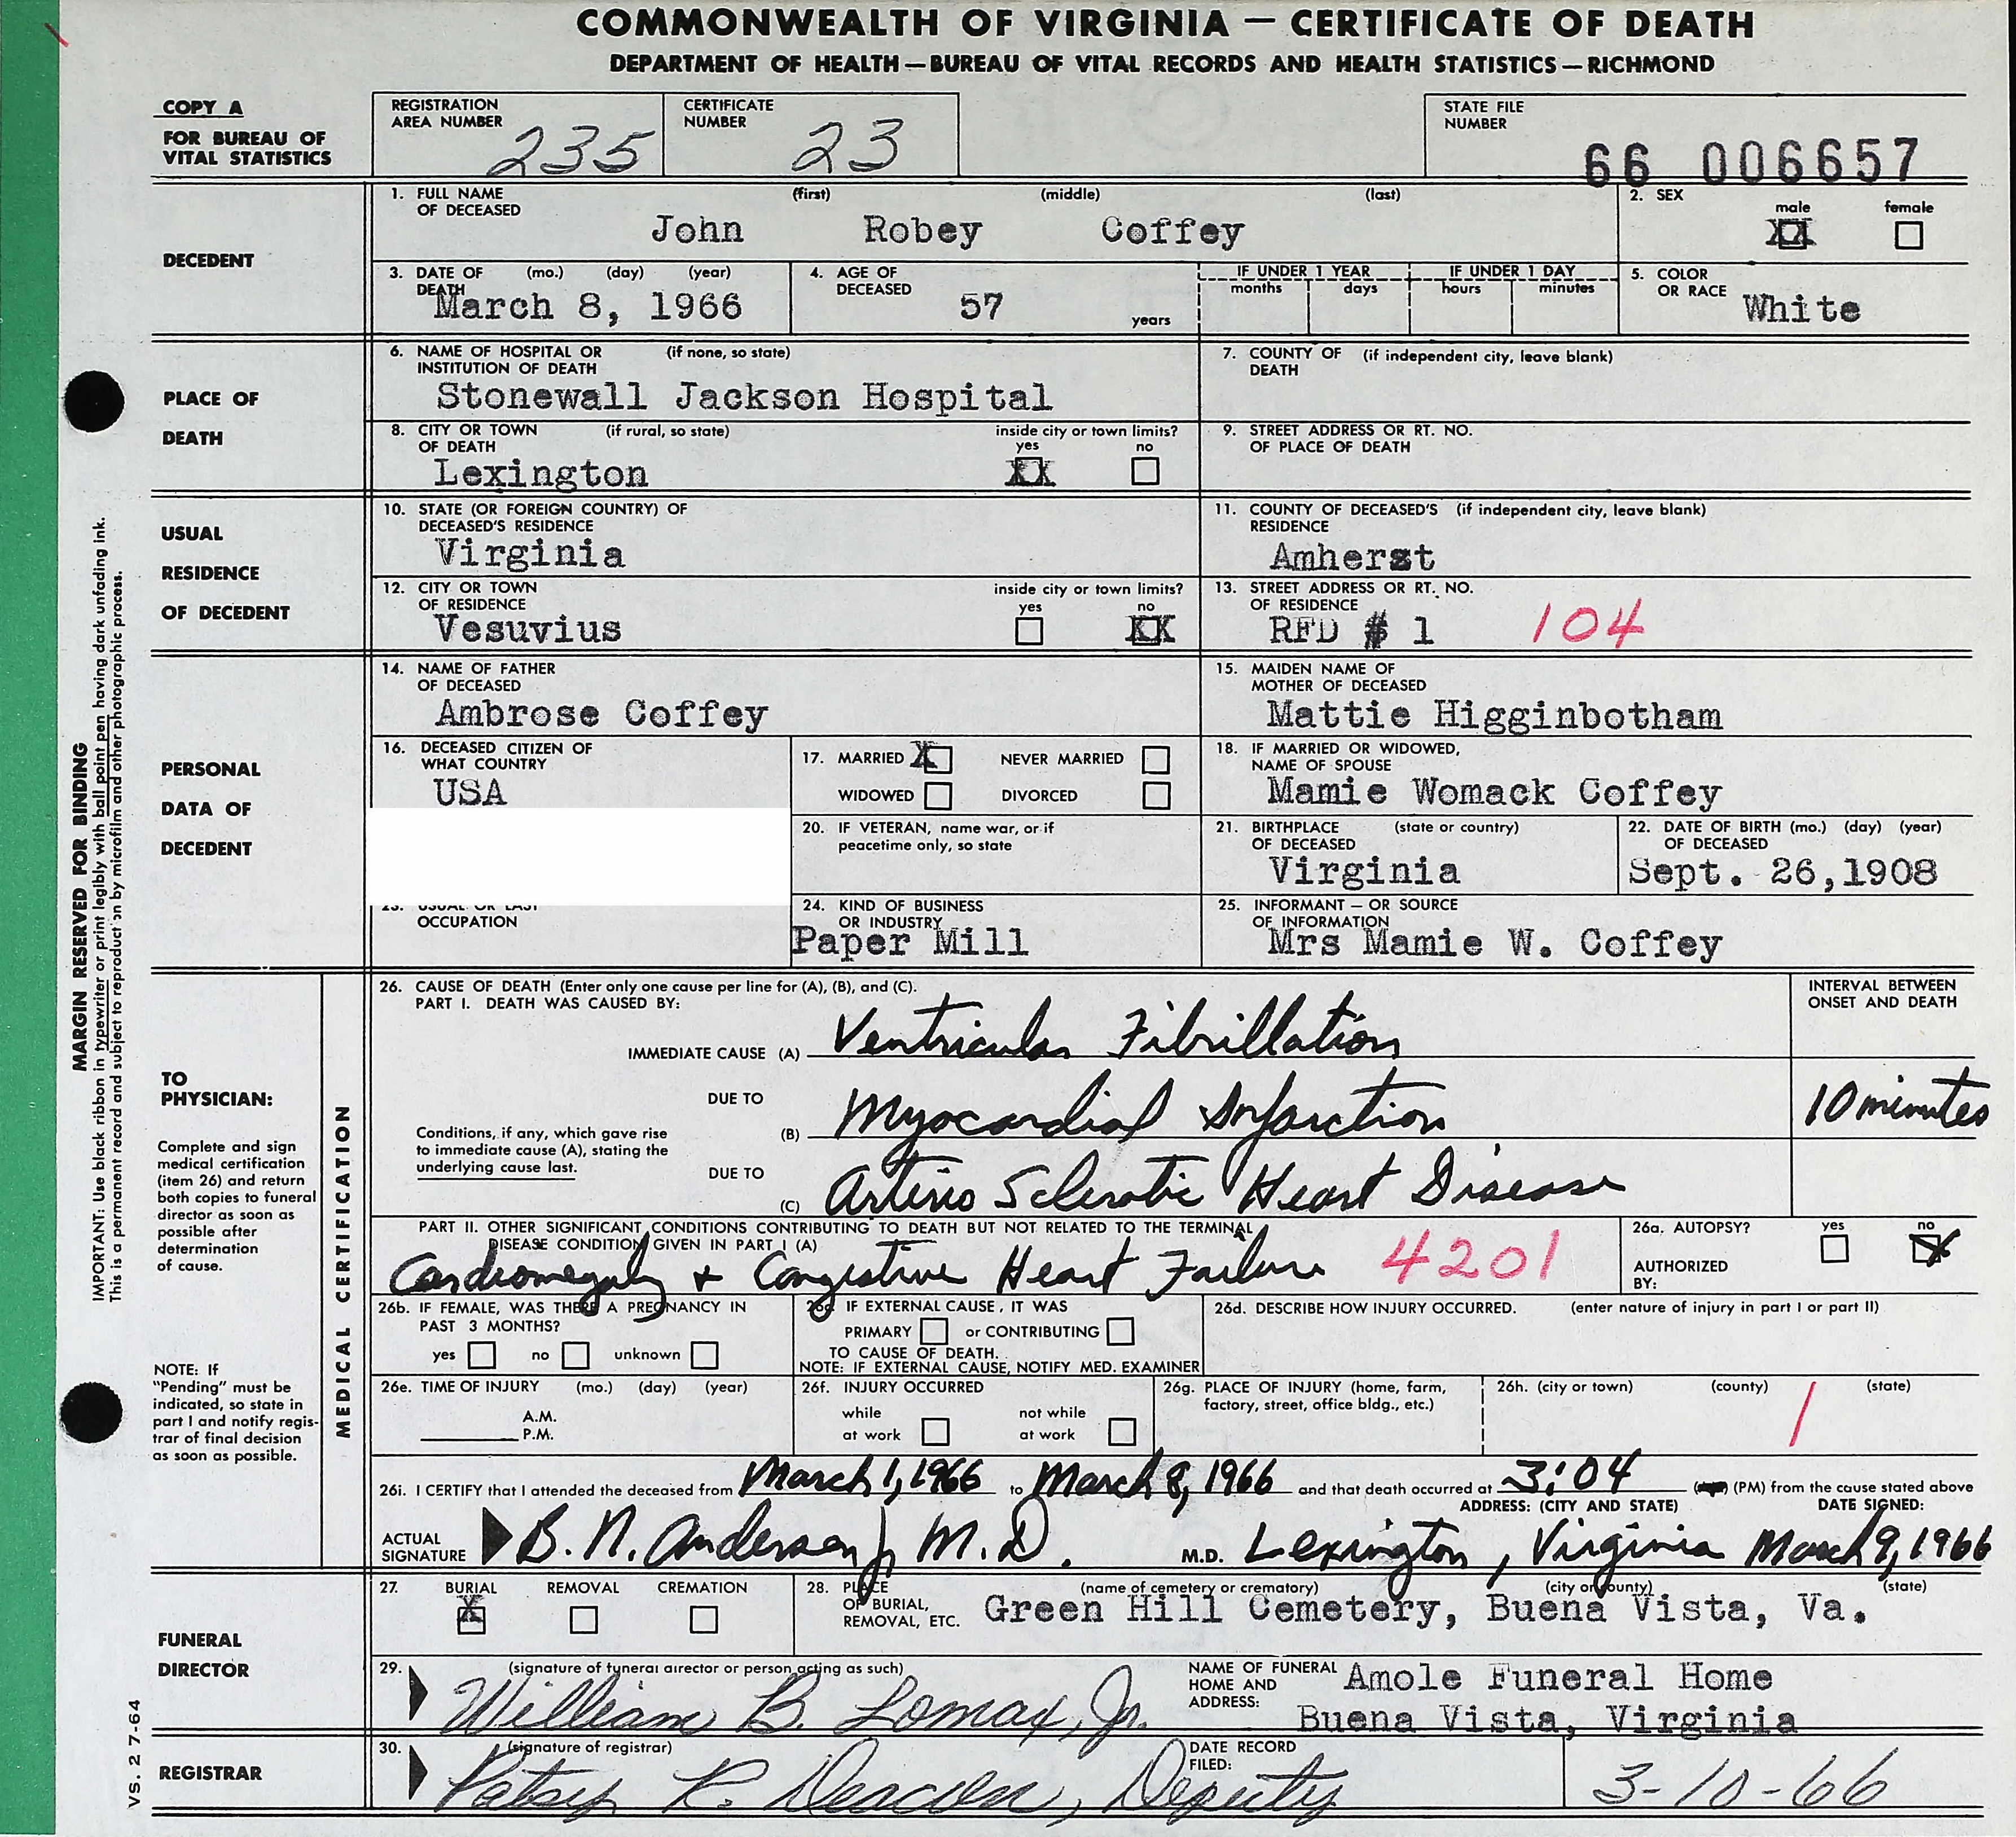 COMMONWEALTH OF VIRGINIA — CERTIFICATE OF DEATH
DEPARTMENT OF HEALTH — BUREAU OF VITAL RECORDS AND HEALTH STATISTICS — RICHMOND
COPY A
FOR BUREAU OF
VITAL STATISTICS
REGISTRATION
AREA NUMBER
235
CERTIFICATE
NUMBER
23
STATE FILE
NUMBER
66 006657
DECEDENT
1. FULL NAME (first) (middle) (last)
OF DECEASED
John Robey Coffey
2. SEX
male female
XX
3. DATE OF (mo.) (day) (year)
DEATH
March 8, 1966
4. AGE OF
DECEASED
57 years
IF UNDER 1 YEAR IF UNDER 1 DAY
months days hours minutes
5. COLOR
OR RACE White
PLACE OF
DEATH
6. NAME OF HOSPITAL OR (if none, so state)
INSTITUTION OF DEATH
Stonewall Jackson Hospital
7. COUNTY OF (if independent city, leave blank)
DEATH
8. CITY OR TOWN (if rural, so state) inside city or town limits?
OF DEATH yes no
Lexington XX
9. STREET ADDRESS OR RT. NO.
OF PLACE OF DEATH
USUAL
RESIDENCE
OF DECEDENT
10. STATE (OR FOREIGN COUNTRY) OF
DECEASED'S RESIDENCE
Virginia
11. COUNTY OF DECEASED'S (if independent city, leave blank)
RESIDENCE
Amherst
12. CITY OR TOWN inside city or town limits?
OF RESIDENCE yes no
Vesuvius XX
13. STREET ADDRESS OR RT. NO.
OF RESIDENCE
RFD # 1 104
PERSONAL
DATA OF
DECEDENT
14. NAME OF FATHER
OF DECEASED
Ambrose Coffey
15. MAIDEN NAME OF
MOTHER OF DECEASED
Mattie Higginbotham
16. DECEASED CITIZEN OF
WHAT COUNTRY
USA
17. MARRIED X NEVER MARRIED
WIDOWED DIVORCED
18. IF MARRIED OR WIDOWED,
NAME OF SPOUSE
Mamie Womack Coffey
20. IF VETERAN, name war, or if
peacetime only, so state
21. BIRTHPLACE (state or country)
OF DECEASED
Virginia
22. DATE OF BIRTH (mo.) (day) (year)
OF DECEASED
Sept. 26,1908
23. USUAL OR LAST
OCCUPATION
24. KIND OF BUSINESS
OR INDUSTRY
Paper Mill
25. INFORMANT — OR SOURCE
OF INFORMATION
Mrs Mamie W. Coffey
TO
PHYSICIAN:
Complete and sign
medical certification
(item 26) and return
both copies to funeral
director as soon as
possible after
determination
of cause.
NOTE: If
"Pending" must be
indicated, so state in
part I and notify regis-
trar of final decision
as soon as possible.
MEDICAL CERTIFICATION
26. CAUSE OF DEATH (Enter only one cause per line for (A), (B), and (C).
PART I. DEATH WAS CAUSED BY:
INTERVAL BETWEEN
ONSET AND DEATH
IMMEDIATE CAUSE (A) Ventricular Fibrillation
DUE TO
Conditions, if any, which gave rise
to immediate cause (A), stating the
underlying cause last.
(B) Myocardial Infarction
10 minutes
DUE TO
(C) Arterio Sclerotic Heart Disease
PART II. OTHER SIGNIFICANT CONDITIONS CONTRIBUTING TO DEATH BUT NOT RELATED TO THE TERMINAL
DISEASE CONDITION GIVEN IN PART I (A)
Cardiomegaly + Congestive Heart Failure 4201
26a. AUTOPSY? yes no
X
AUTHORIZED
BY:
26b. IF FEMALE, WAS THERE A PREGNANCY IN
PAST 3 MONTHS?
yes no unknown
26c. IF EXTERNAL CAUSE, IT WAS
PRIMARY or CONTRIBUTING
TO CAUSE OF DEATH.
NOTE: IF EXTERNAL CAUSE, NOTIFY MED. EXAMINER
26d. DESCRIBE HOW INJURY OCCURRED. (enter nature of injury in part I or part II)
26e. TIME OF INJURY (mo.) (day) (year)
A.M.
P.M.
26f. INJURY OCCURRED
while not while
at work at work
26g. PLACE OF INJURY (home, farm,
factory, street, office bldg., etc.)
26h. (city or town) (county) (state)
1
26i. I CERTIFY that I attended the deceased from March 1, 1966 to March 8, 1966 and that death occurred at 3:04 (PM) from the cause stated above
ADDRESS: (CITY AND STATE) DATE SIGNED:
ACTUAL
SIGNATURE B. N. Anderson Jr M.D. M.D. Lexington, Virginia March 9, 1966
FUNERAL
DIRECTOR
27. BURIAL REMOVAL CREMATION
X
28. PLACE (name of cemetery or crematory) (city or county) (state)
OF BURIAL,
REMOVAL, ETC.
Green Hill Cemetery, Buena Vista, Va.
29. (signature of funeral director or person acting as such)
William B. Lomax, Jr.
NAME OF FUNERAL
HOME AND
ADDRESS:
Amole Funeral Home
Buena Vista, Virginia
REGISTRAR
30. (signature of registrar)
Patsy R. Deacon, Deputy
DATE RECORD
FILED:
3-10-66
MARGIN RESERVED FOR BINDING
IMPORTANT: Use black ribbon in typewriter or print legibly with ball point pen having dark unfading ink.
This is a permanent record and subject to reproduction by microfilm and other photographic process.
VS. 2 7-64